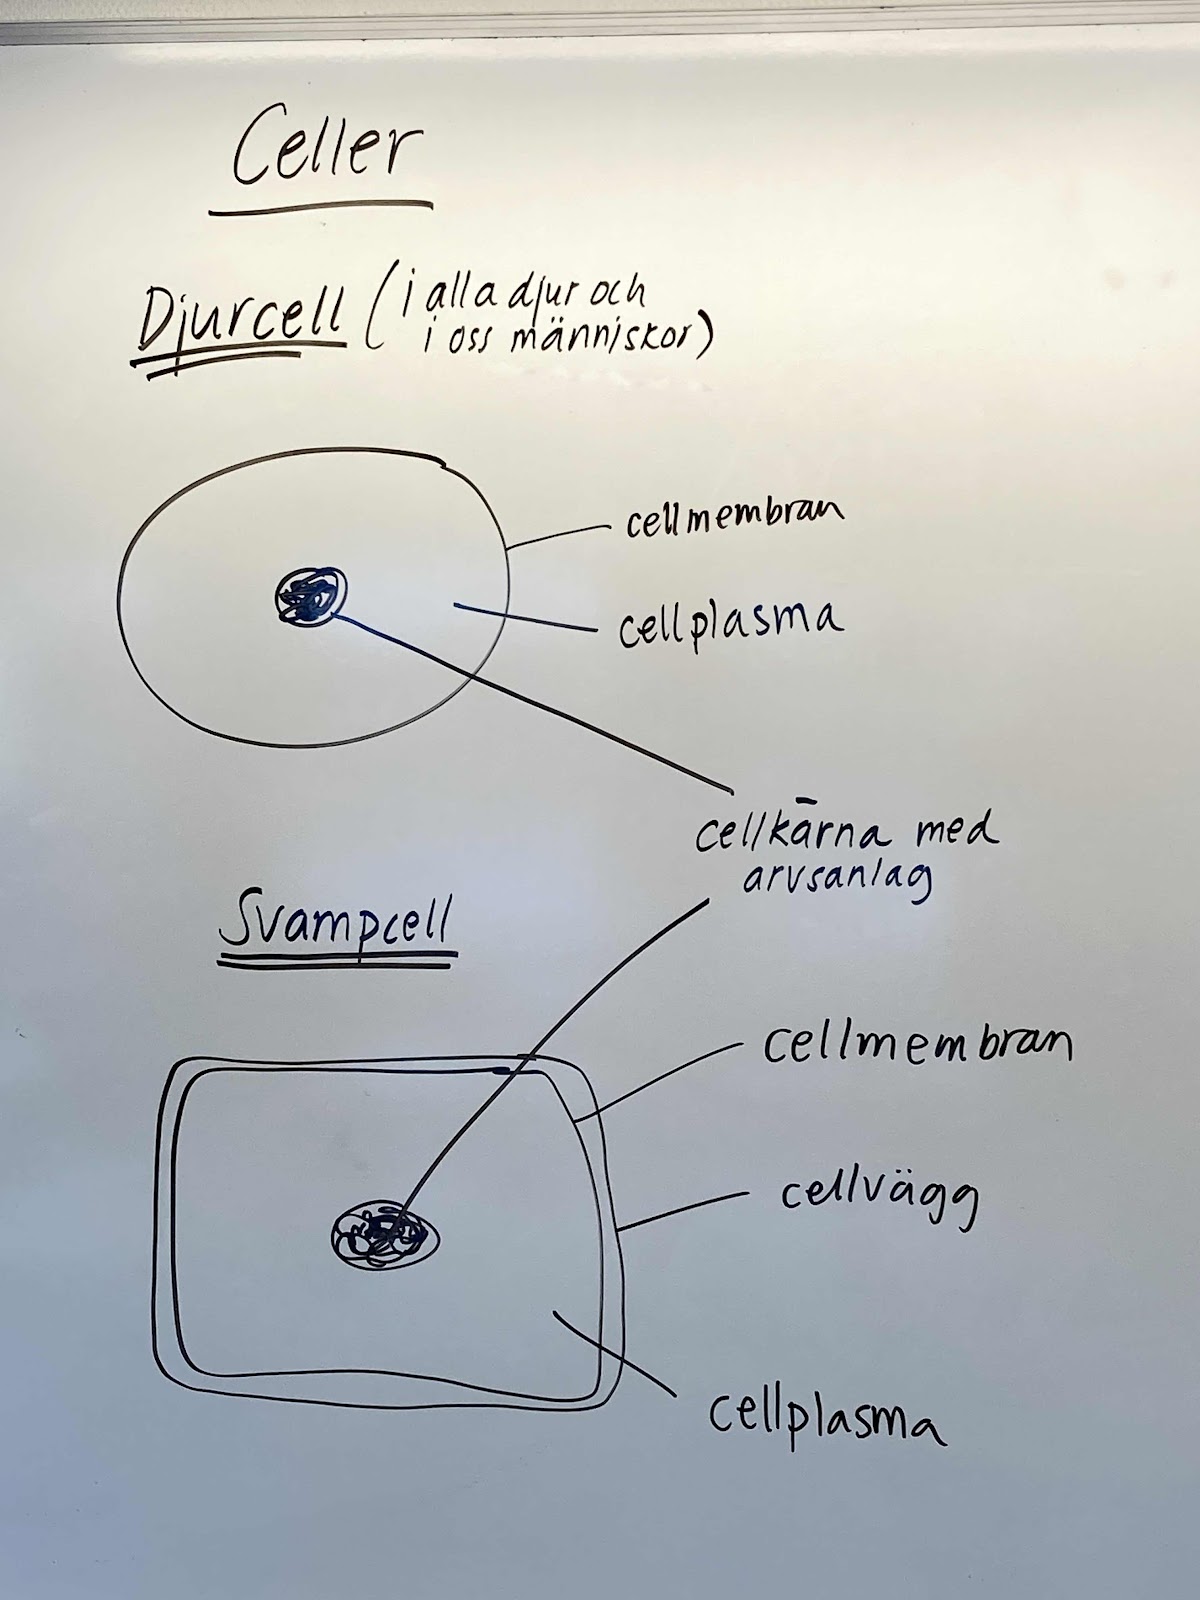 Celler
Djurcell (i alla djur och
i oss människor)
cellmembran
cellplasma
cellkärna med
arvsanlag
Svampcell
cellmembran
cellvägg
cellplasma